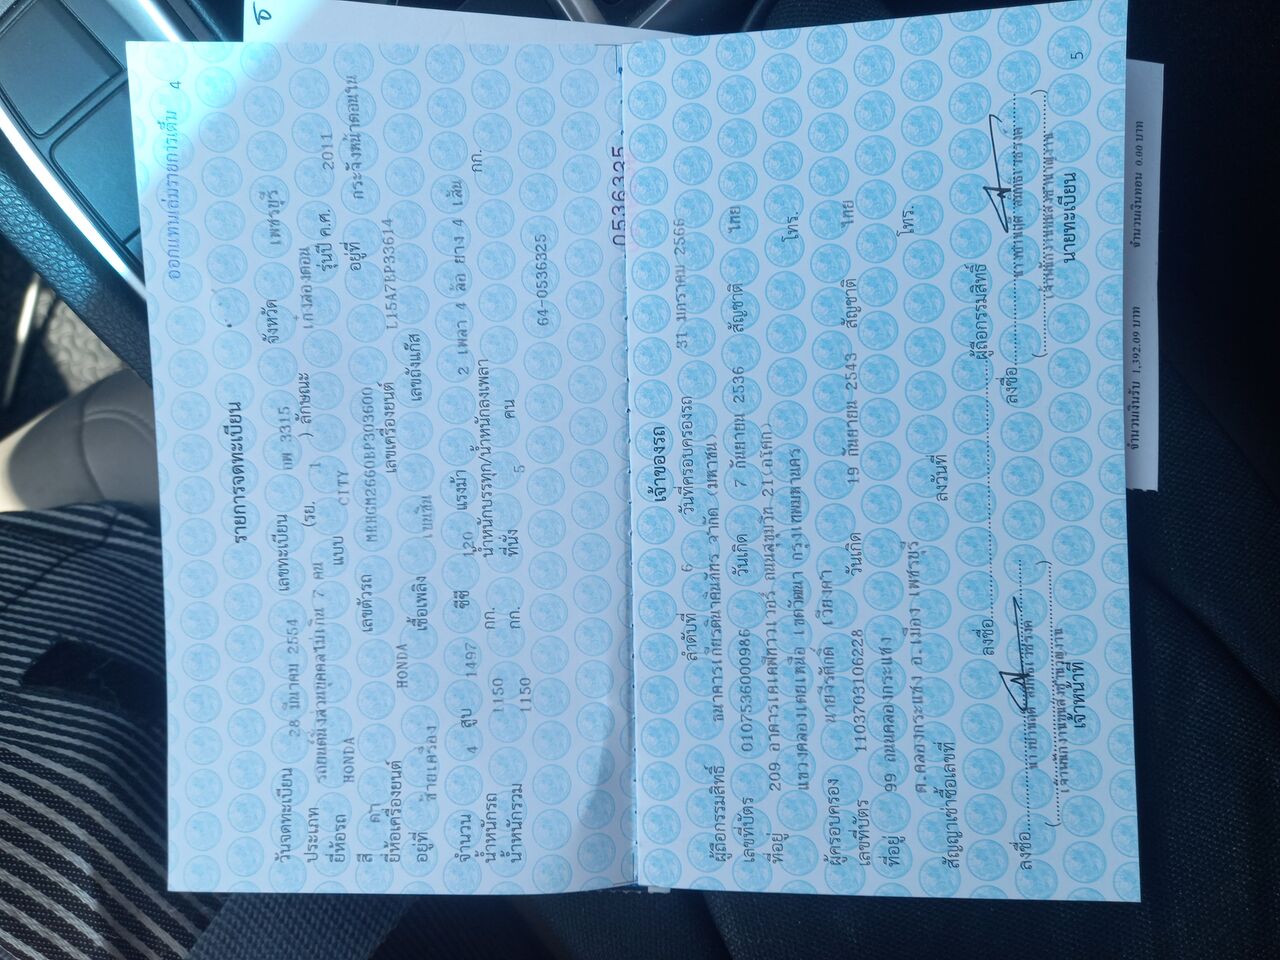 ออกแทนเล่มรายการเต็ม 4
รายการจดทะเบียน
วันจดทะเบียน 28 มีนาคม 2554 เลขทะเบียน กพ 3315 จังหวัด เพชรบุรี
ประเภท รถยนต์นั่งส่วนบุคคลไม่เกิน 7 คน (รย. 1 ) ลักษณะ เก๋งสองตอน
ยี่ห้อรถ HONDA แบบ CITY รุ่นปี ค.ศ. 2011
สี ดำ เลขตัวรถ MRHGM2660BP303600 อยู่ที่ กระจังหน้าตอนใน
ยี่ห้อเครื่องยนต์ HONDA เลขเครื่องยนต์ L15A7BP33614
อยู่ที่ ซ้ายเครื่อง เชื้อเพลิง เบนซิน เลขถังแก๊ส
จำนวน 4 สูบ 1497 ซีซี 120 แรงม้า 2 เพลา 4 ล้อ ยาง 4 เส้น
น้ำหนักรถ 1150 กก. น้ำหนักบรรทุก/น้ำหนักลงเพลา กก.
น้ำหนักรวม 1150 กก. ที่นั่ง 5 คน
64-0536325
0536325
เจ้าของรถ
ลำดับที่ 6 วันที่ครอบครองรถ 31 มกราคม 2566
ผู้ถือกรรมสิทธิ์ ธนาคารเกียรตินาคินภัทร จำกัด (มหาชน)
เลขที่บัตร 0107536000986 วันเกิด 7 กันยายน 2536 สัญชาติ ไทย
ที่อยู่ 209 อาคารเคเคพีทาวเวอร์ ถนนสุขุมวิท 21(อโศก)
แขวงคลองเตยเหนือ เขตวัฒนา กรุงเทพมหานคร โทร.
ผู้ครอบครอง นายจีรศักดิ์ เวียงคำ
เลขที่บัตร 1103703106228 วันเกิด 19 กันยายน 2543 สัญชาติ ไทย
ที่อยู่ 99 ถนนคลองกระแชง
ต.คลองกระแชง อ.เมือง เพชรบุรี โทร.
สัญญาเช่าซื้อเลขที่ ลงวันที่
ลงชื่อ ผู้ถือกรรมสิทธิ์
ลงชื่อ ลงชื่อ
เจ้าหน้าที่ นายทะเบียน
5
จำนวนเงินรับ 1,392.09 บาท จำนวนเงินทอน 0.00 บาท